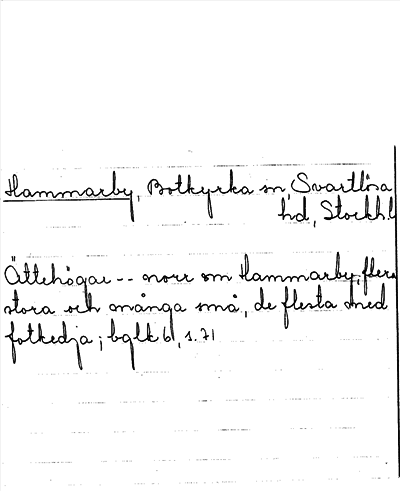 Hammarby, Botkyrka sn, Svartlösa
hd, Stockh.l
Ättehögar -- norr om Hammarby, flera
stora och många små, de flesta med
fotkedja; bglk 6, s. 71